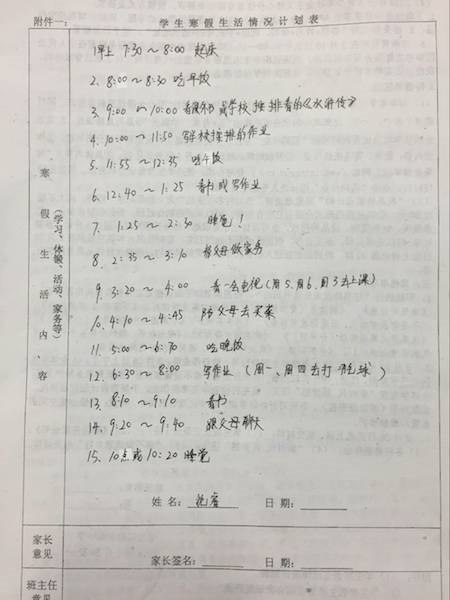 附件一:
学生寒假生活情况计划表
寒假生活内容
(学习、体锻、活动、家务等)
1早上 7:30～8:00 起床
2. 8:00～8:30 吃早饭
3. 9:00～10:00 看课外书或学校推荐看的《水浒传》
4. 10:00～11:50 写学校安排的作业
5. 11:55～12:35 吃午饭
6. 12:40～1:25 看书或写作业
7. 1:25～2:30 睡觉!
8. 2:35～3:10 帮父母做家务
9. 3:20～4:00 看一会电视(周5、周6、周3去上课)
10. 4:10～4:45 陪父母去买菜
11. 5:00～6:30 吃晚饭
12. 6:30～8:00 写作业 (周一、周四去打羽毛球)
13. 8:10～9:10 看书
14. 9:20～9:40 跟父母聊天
15. 10点或10:20 睡觉
姓名: 日期:
家长意见
家长签名: 日期:
班主任意见